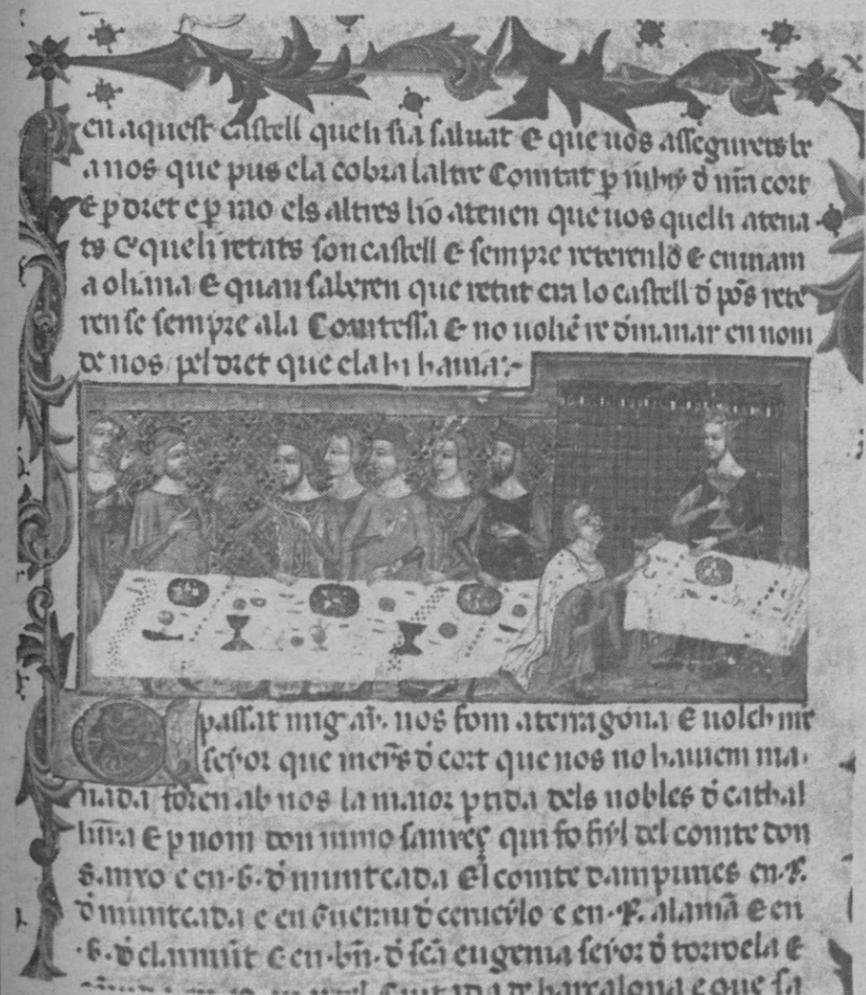 en aquest castell queli sia saluat E que uos assegurets be
a nos que pus ela cobra laltre Comtat p mr̄ey d̄ nr̄a cort
E p dret e p mo els altres ho atenen que uos quelli atena
ts E queli retats son castell E sempre reterenlo E euinam
a oliana E quan saberen que retut era lo castell d̄ pōs rete
ren se sempre ala Comtessa E no uolie re d̄manar en nom
de nos pel dret que ela hi hauia
E passat mig ay. nos fom a terragona E uolch nr̄e
seyor que meyns d̄ cort que nos no hauiem ma
nada foren ab nos la maior ptida dels nobles d̄ cathal
unya E p nom don nuno sanxeç qui fo fiyl del comte don
S.anxo e en .G. d̄ muntcada El comte dampuries en .R.
d̄ muntcada e en Guerau d̄ cerueylo e en .R. alamā E en
.G. d̄ claramūt E en .bn̄. d̄ scā eugenia seyor d̄ torroela E
barcalona e que